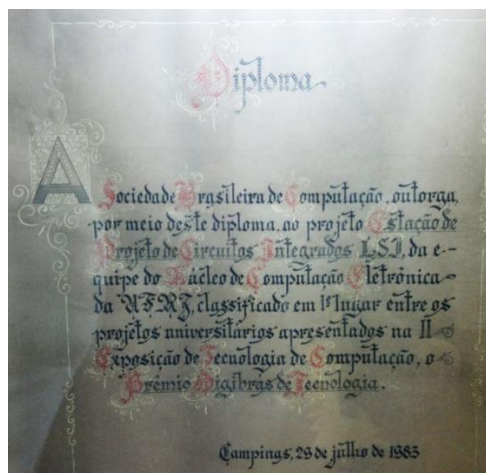 Diploma
A Sociedade Brasileira de Computação, outorga,
por meio deste diploma, ao projeto Estação de
Projeto de Circuitos Integrados LSI, da e-
quipe do Núcleo de Computação Eletrônica
da UFRJ, classificado em 1º lugar entre os
projetos universitários apresentados na II
Exposição de Tecnologia de Computação, o
Prêmio Digibrás de Tecnologia.
Campinas, 29 de julho de 1983